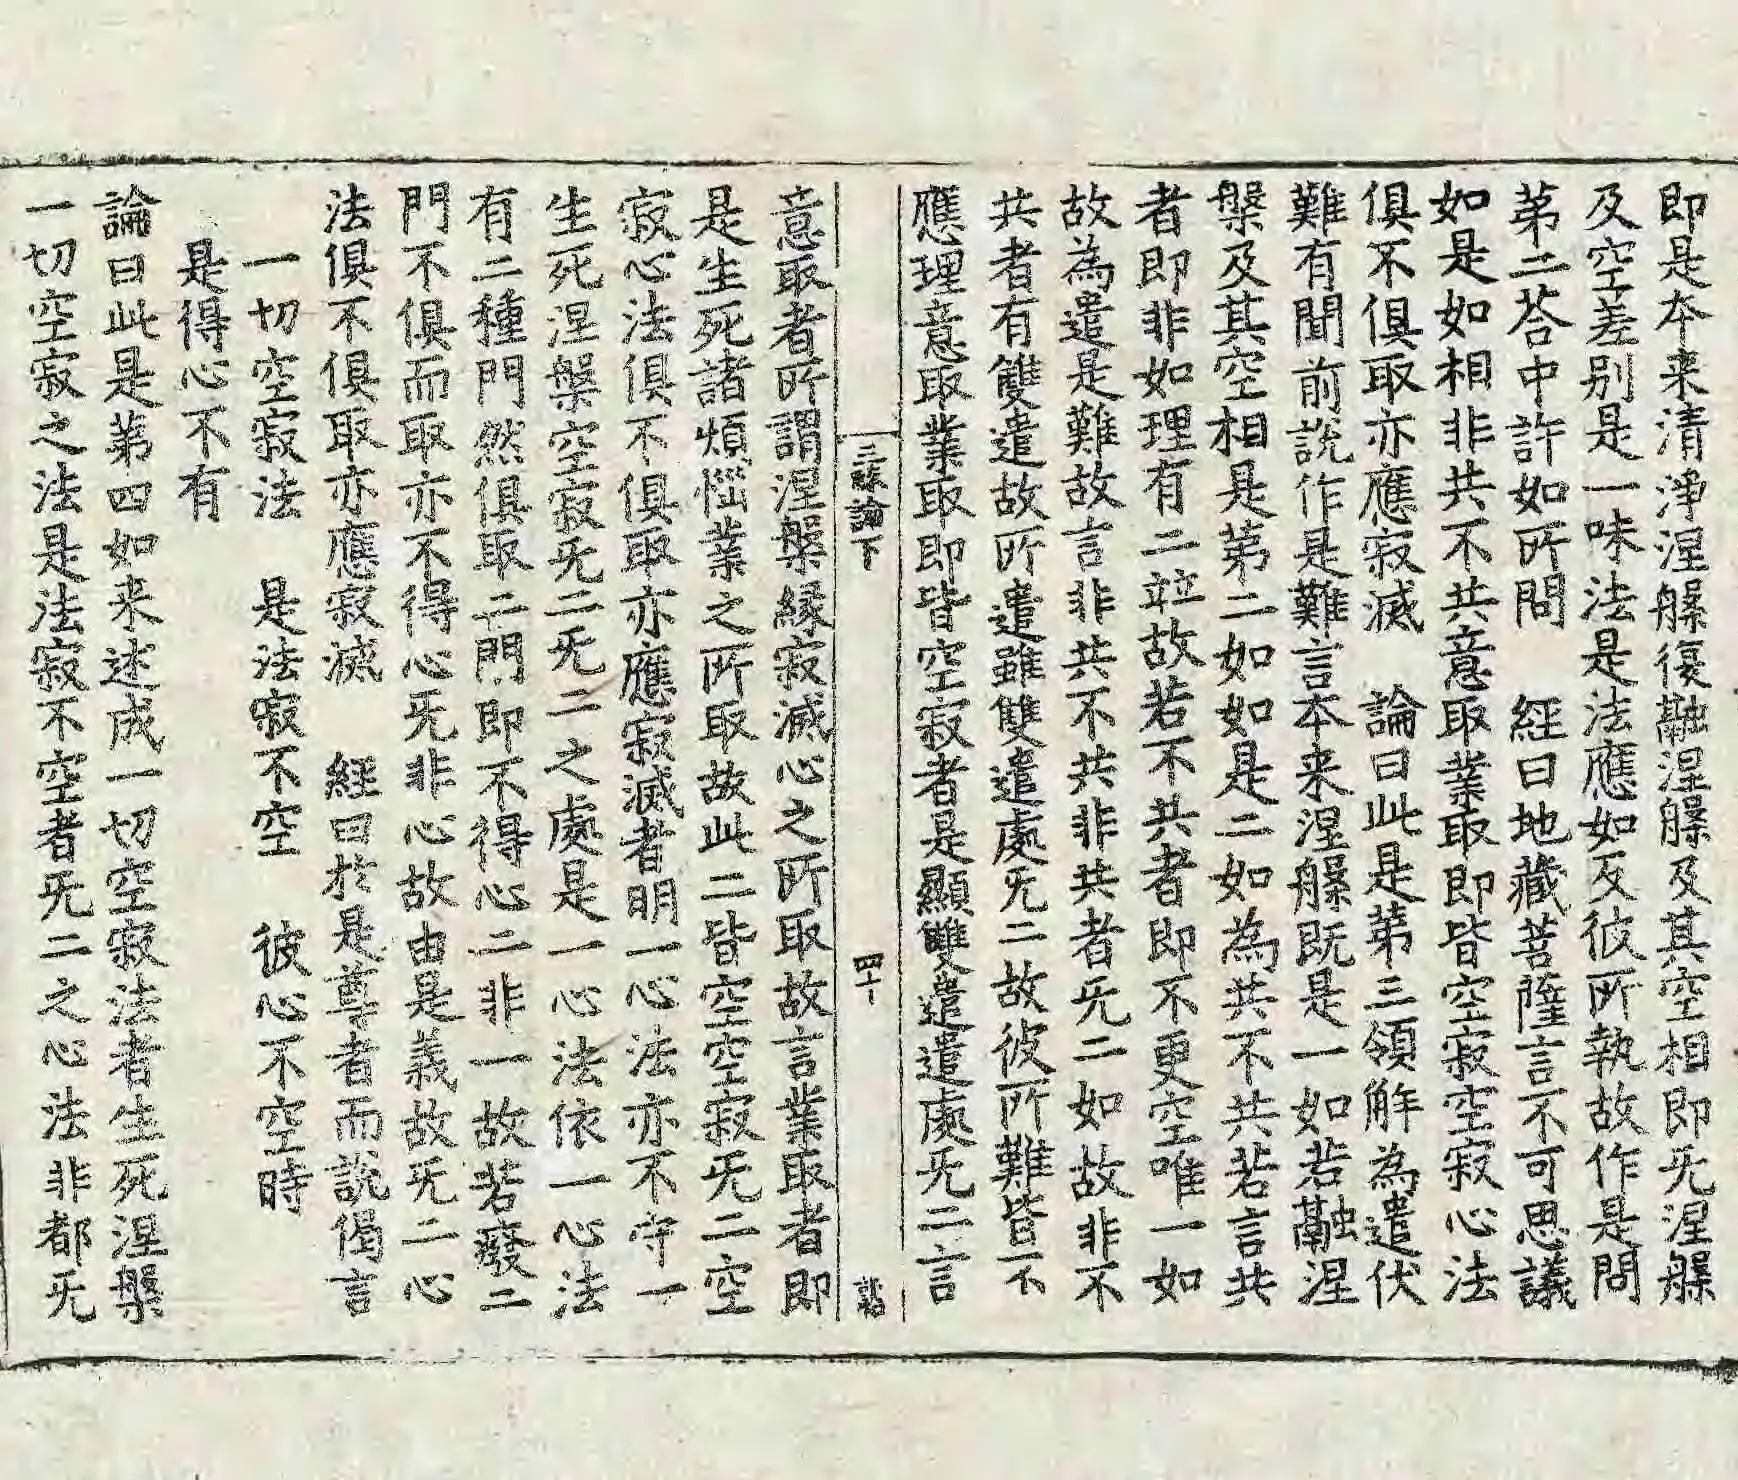 即是本来清淨涅槃復融涅槃及其空相即旡涅槃
及空差别是一味法是法應如反彼所執故作是問
苐二荅中許如所問　經曰地藏菩薩言不可思議
如是如相非共不共意取業取即皆空寂空寂心法
俱不俱取亦應寂滅　論曰此是苐三領解為遣伏
難有聞前説作是難言本来涅槃既是一如若融涅
槃及其空相是苐二如如是二如為共不共若言共
者即非如理有二竝故若不共者即不更空唯一如
故為遣是難故言非共不共非共者旡二如故非不
共者有雙遣故所遣雖雙遣處旡二故彼所難皆不
應理意取業取即皆空寂者是顯雙遣遣處旡二言
三昧論下　四十　詰
意取者所謂涅槃縁寂滅心之所取故言業取者即
是生死諸煩惱業之所取故此二皆空空寂旡二空
寂心法俱不俱取亦應寂滅者明一心法亦不守一
生死涅槃空寂旡二旡二之處是一心法依一心法
有二種門然俱取二門即不得心二非一故若廢二
門不俱而取亦不得心旡非心故由是義故旡二心
法俱不俱取亦應寂滅　經曰於是尊者而説偈言
一切空寂法　是法寂不空　彼心不空時
是得心不有
論曰此是苐四如来述成一切空寂法者生死涅槃
一切空寂之法是法寂不空者旡二之心法非都旡